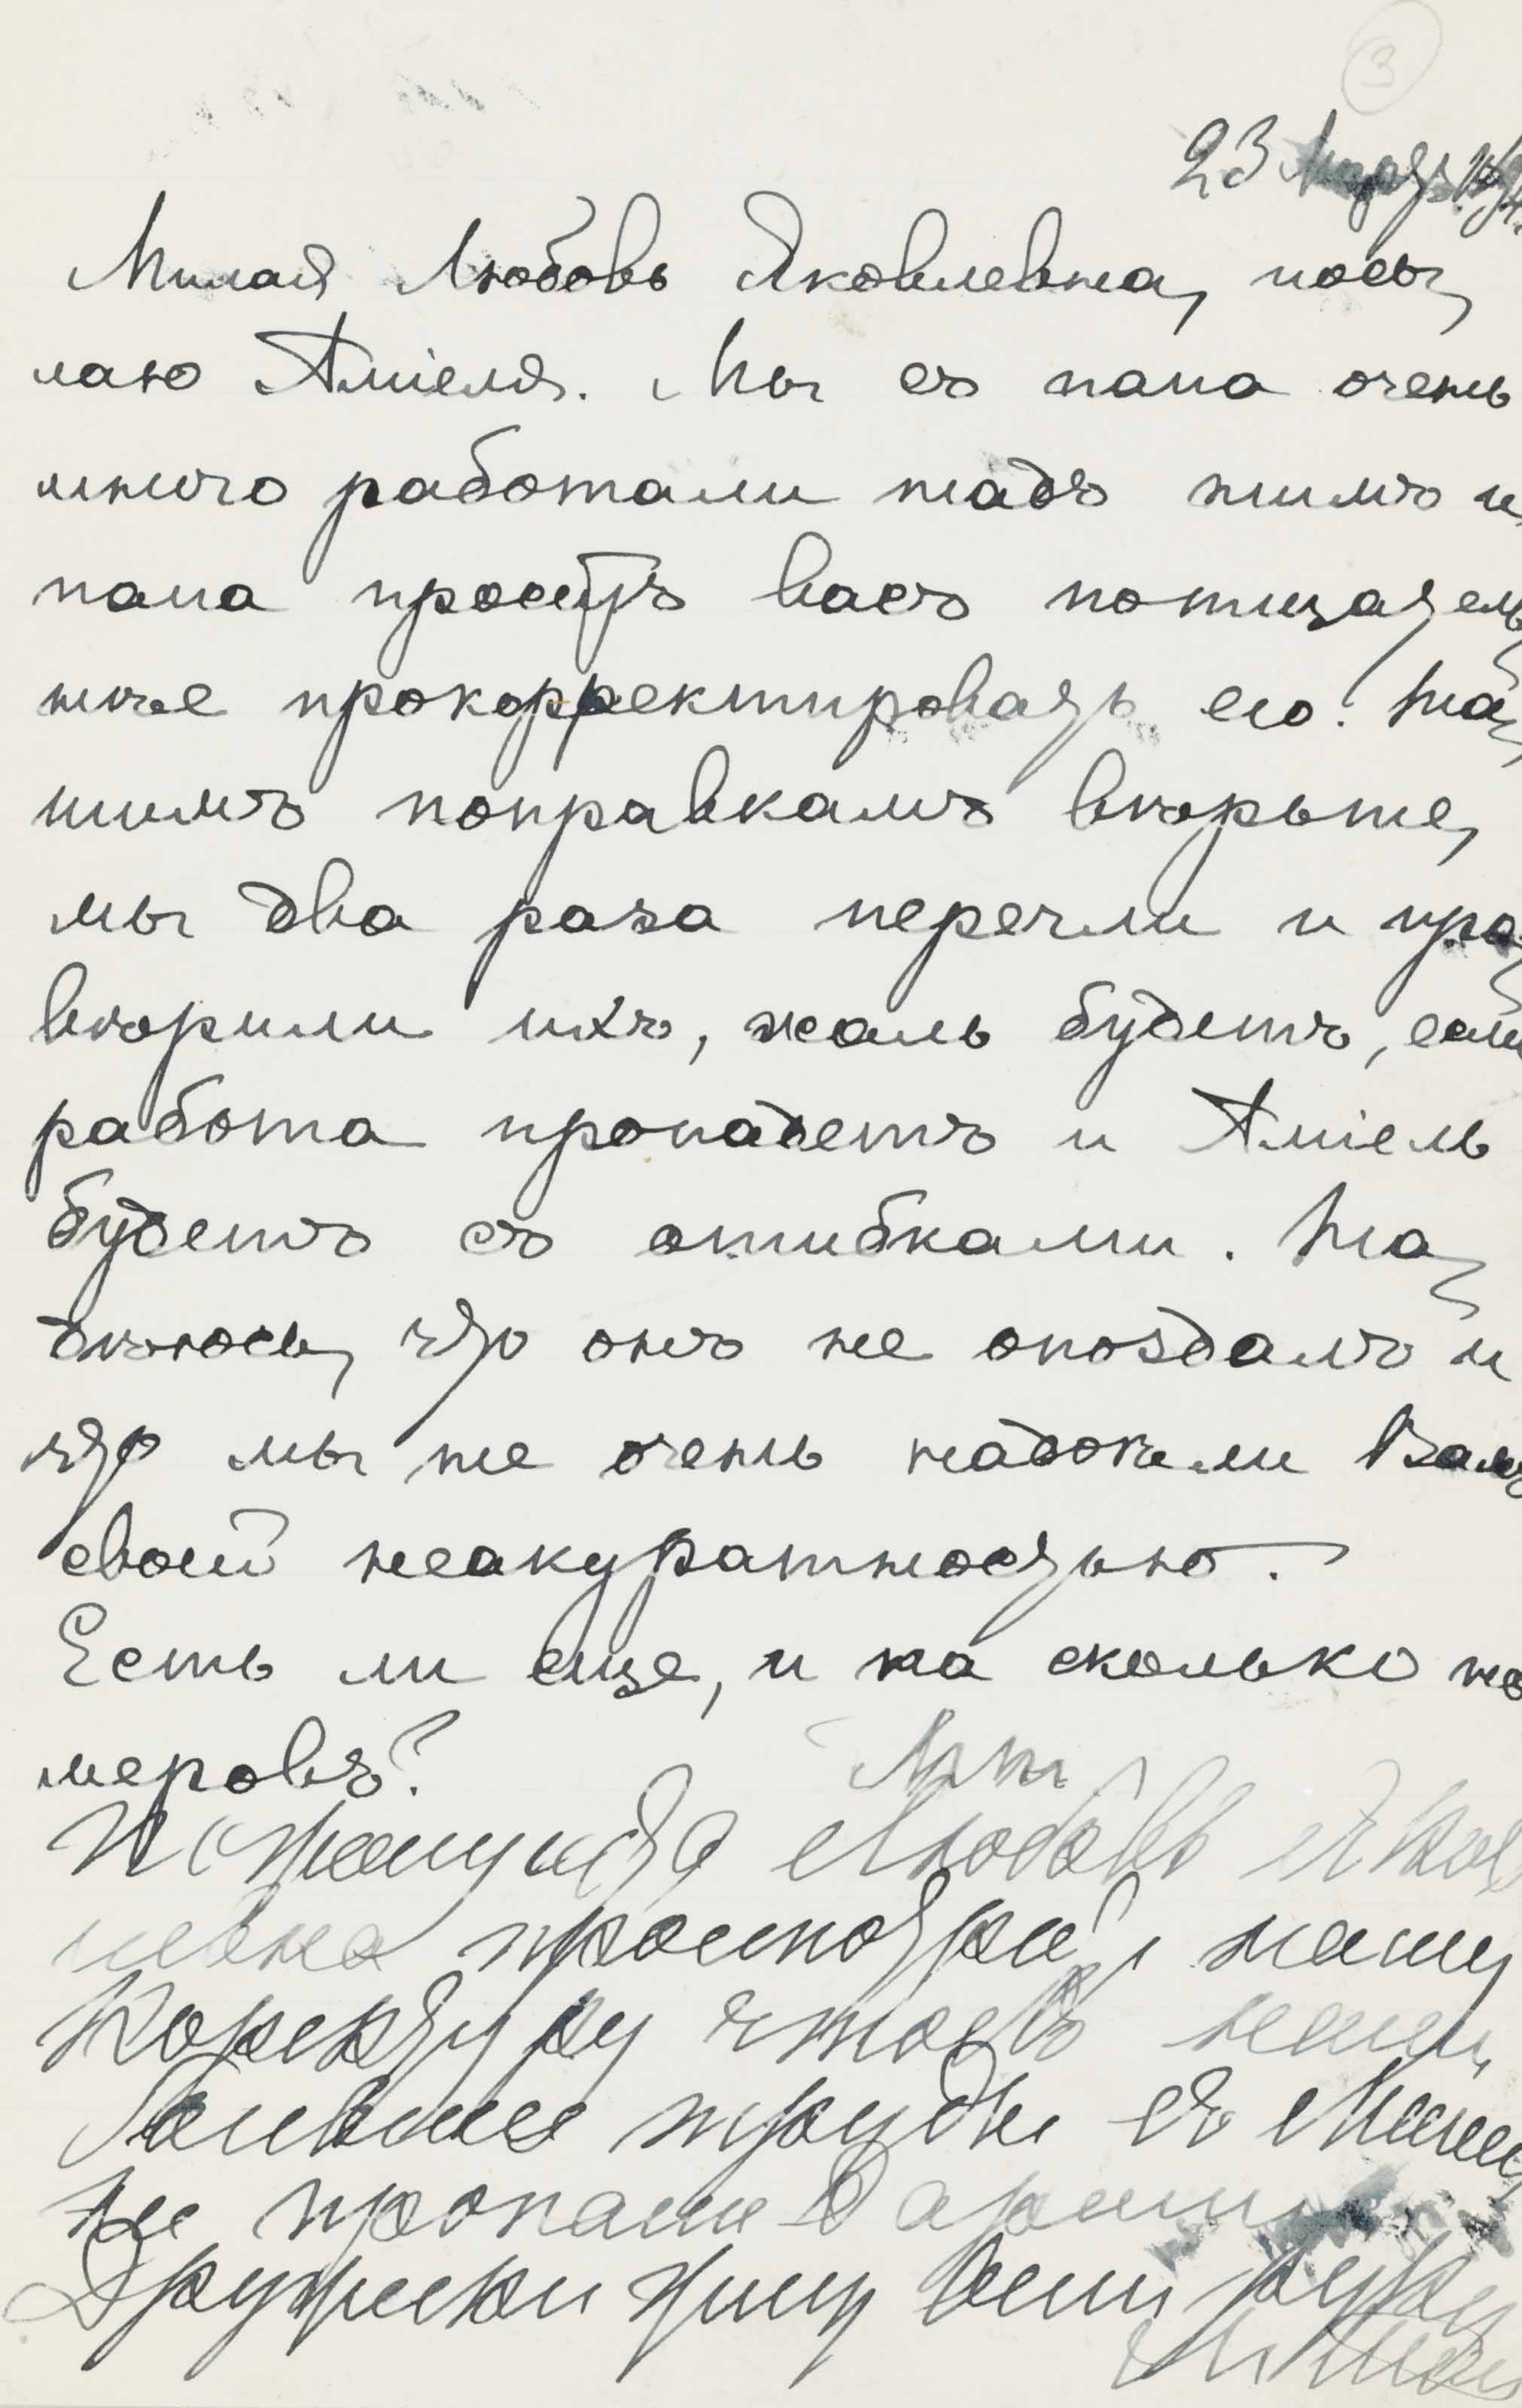 3
23 Марта
Милая Любовь Яковлевна, посы-
лаю Аміеля. Мы съ папа очень
много работали надъ нимъ и
папа проситъ васъ потщатель-
нѣе прокорректировать его. На-
шимъ поправкамъ вѣрьте,
мы два раза перечли и про-
вѣрили ихъ, жаль будетъ, если
работа пропадетъ и Аміель
будетъ съ ошибками. На-
дѣюсь, что онъ не опоздалъ и
что мы не очень надоѣли Вамъ
своей неакуратностью.
Есть ли еще, и на сколько но
меровъ?
Пожалуйста Любовь Яков
левна просмотрите нашу
Коректуру чтобъ наши
большие труды съ Машей
не пропали даромъ
Дружески жму вашу руку